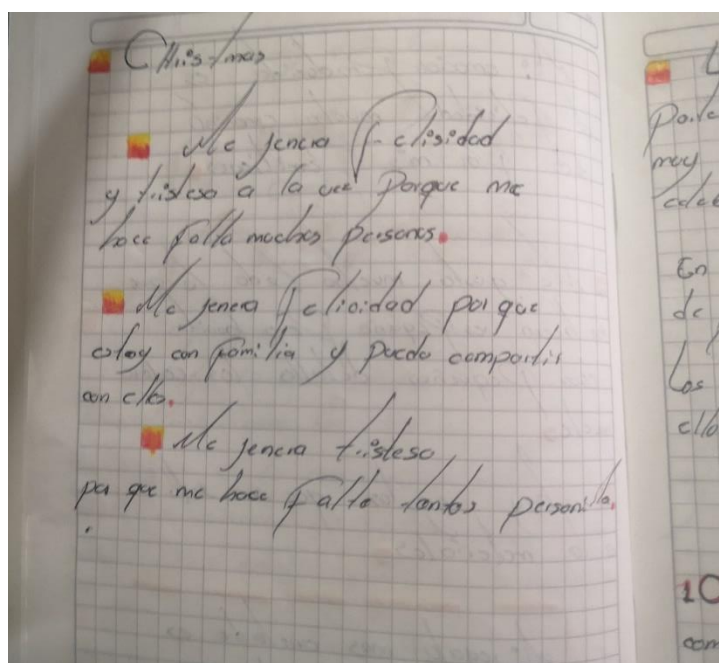 Christmas
Me jenera felisidad
y tristesa a la vez porque me
hace falta muchas personas.
Me jenera felicidad por que
estoy con familia y puedo compartir
con ellos.
Me jenera tristesa
por que me hace falta tantas personitas.
En
de
Los
muy
1